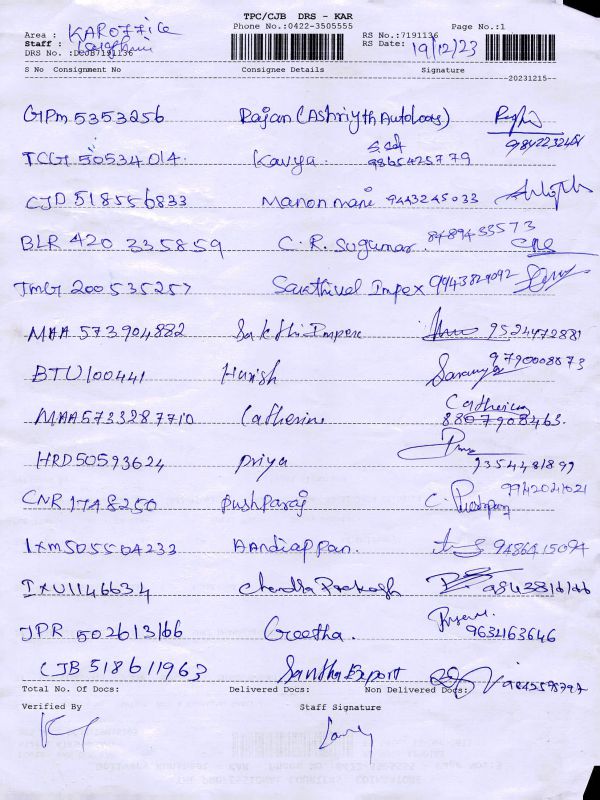 TPC/CJB DRS - KAR
Phone No.:0422-3505555 Page No.:1
Area : KAROFFICE RS No.:7191136
Staff : RS Date: 19/12/23
DRS No. :DCJB7191136
S No Consignment No Consignee Details Signature
20231215
GPM 5353256 Rajan (Ashriyth Autoloos)
TCG1 50534014 Kavya. 9865425779
CJD 518556833 Manonmani 9443245033
BLR 420 335859 C. R. Sugumar. 8489433573
TMG 200535257 Sakthivel Impex 9943829092
MAA 573904882 Sakthi Impex 9524472881
BTU100441 Harish 9790008873
MAA5733287710 Catherine Catherine 8807908463.
HRD50593624 Priya 9354481899
CNR 1748250 Pushparaj C. Pushparaj 9942041021
IXM505504233 Aandiappan. 9486415094
IXU1146634 Chendra Prakash
JPR 502613166 Geetha. 9632163646
CJB 518611963 Santha Export
Total No. Of Docs: Delivered Docs: Non Delivered Docs:
Verified By Staff Signature